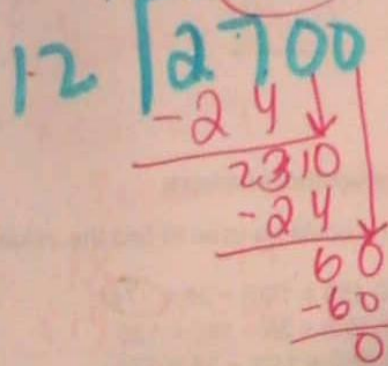 12 2700
-24
2310
-24
60
-60
0